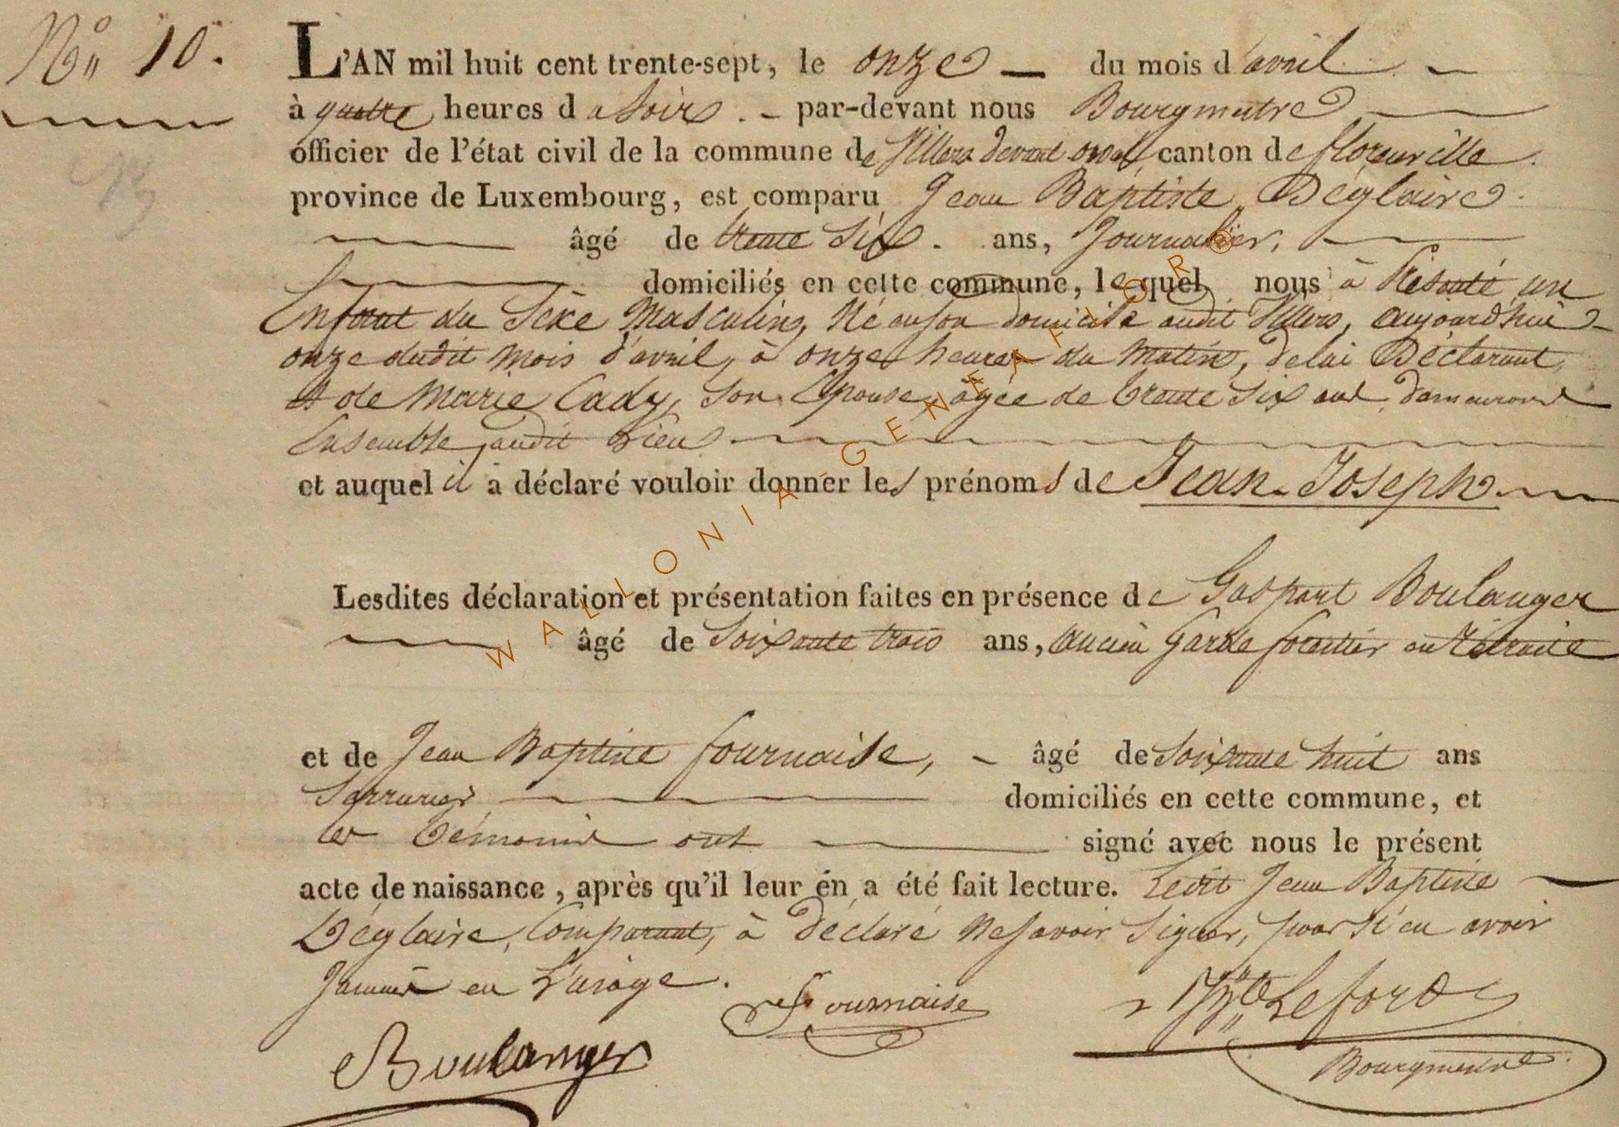 N° 10.
L'AN mil huit cent trente-sept, le onze du mois d'avril
à quatre heures du Soir. par-devant nous Bourgmestre
officier de l'état civil de la commune de Villers devant orval canton de florenville.
province de Luxembourg, est comparu Jean Baptiste Déglaire.
âgé de trente Six. ans, Journalier,
domiciliés en cette commune, lequel nous à Présenté un
Enfant du Sexe Masculin, Né en son domicile audit Villers, aujourd'hui
onze dudit mois d'avril, à onze heures du matin, de lui Déclarant
et de Marie Cady, Son Epouse, âgée de trente Six ans, demeurant
Ensemble audit Lieu
et auquel il a déclaré vouloir donner les prénoms de Jean-Joseph
Lesdites déclaration et présentation faites en présence de Gaspart Boulanger
âgé de Soixante trois ans, ancien Garde forestier en Retraite
et de Jean Baptiste fournaise, âgé de Soixante huit ans
Serrurier domiciliés en cette commune, et
les témoins ont signé avec nous le présent
acte de naissance, après qu'il leur en a été fait lecture. Ledit Jean Baptiste
Déglaire, Comparant, à déclaré Ne savoir Signer, pour n'en avoir
Jamais eu L'usage.
Fournaise
Bte Lefort
Boulanger
Bourgmestre
WALLONIA-GENEAFLOR®